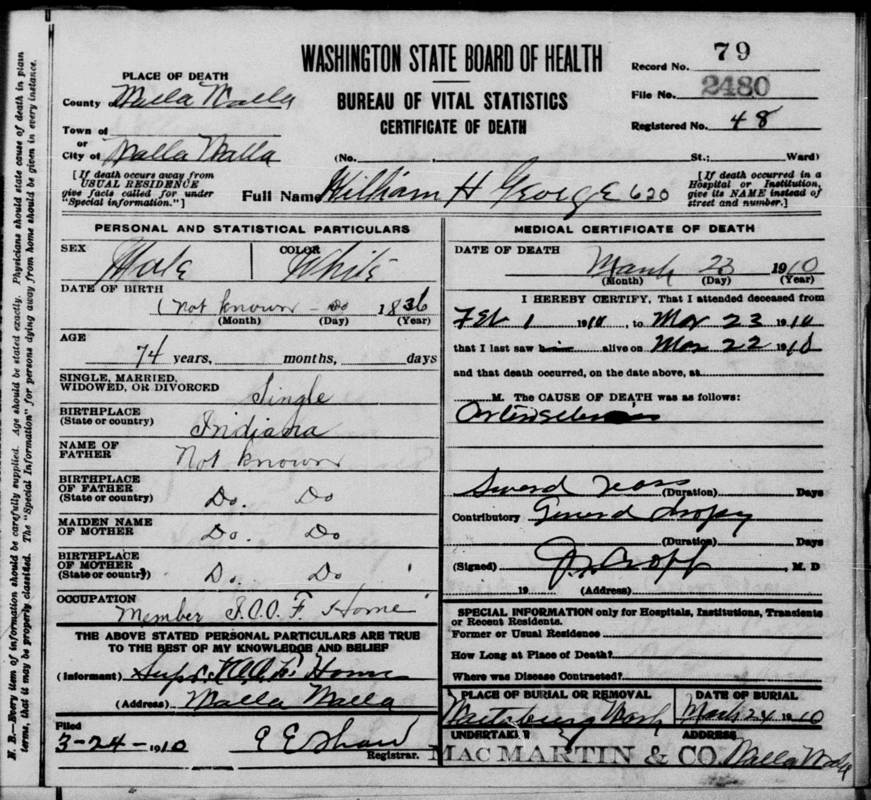 WASHINGTON STATE BOARD OF HEALTH
BUREAU OF VITAL STATISTICS
CERTIFICATE OF DEATH
Record No. 79
File No. 2480
Registered No. 48
PLACE OF DEATH
County of Walla Walla
Town of
or
City of Walla Walla
(No. St.; Ward)
[If death occurs away from
USUAL RESIDENCE
give facts called for under
"Special information."]
Full Name William H George 620
[If death occurred in a
Hospital or Institution,
give its NAME instead of
street and number.]
PERSONAL AND STATISTICAL PARTICULARS
SEX Male
COLOR White
DATE OF BIRTH
Not known - Do 1836
(Month) (Day) (Year)
AGE
74 years, months, days
SINGLE, MARRIED,
WIDOWED, OR DIVORCED
Single
BIRTHPLACE
(State or country)
Indiana
NAME OF
FATHER
Not known
BIRTHPLACE
OF FATHER
(State or country)
Do. Do
MAIDEN NAME
OF MOTHER
Do. Do
BIRTHPLACE
OF MOTHER
(State or country)
Do. Do
OCCUPATION
Member I.O.O.F. Home
THE ABOVE STATED PERSONAL PARTICULARS ARE TRUE
TO THE BEST OF MY KNOWLEDGE AND BELIEF
(Informant) Supt. I.O.O.F. Home
(Address) Walla Walla
Filed
3-24-1910
Registrar.
MEDICAL CERTIFICATE OF DEATH
DATE OF DEATH
March 23 1910
(Month) (Day) (Year)
I HEREBY CERTIFY, That I attended deceased from
Feb 1 1910, to Mar 23 1910
that I last saw alive on Mar 22 1910
and that death occurred, on the date above, at
M. The CAUSE OF DEATH was as follows:
Several Years (Duration) Days
Contributory General Dropsy
(Duration) Days
(Signed) , M. D
19 (Address)
SPECIAL INFORMATION only for Hospitals, Institutions, Transients
or Recent Residents.
Former or Usual Residence
How Long at Place of Death?
Where was Disease Contracted?
PLACE OF BURIAL OR REMOVAL
Waitsburg Wash
DATE OF BURIAL
March 24 1910
UNDERTAKER
MACMARTIN & CO.
ADDRESS
Walla Walla
N. B.—Every item of information should be carefully supplied. Age should be stated exactly. Physicians should state cause of death in plain
terms, that it may be properly classified. The "Special Information" for persons dying away from home should be given in every instance.